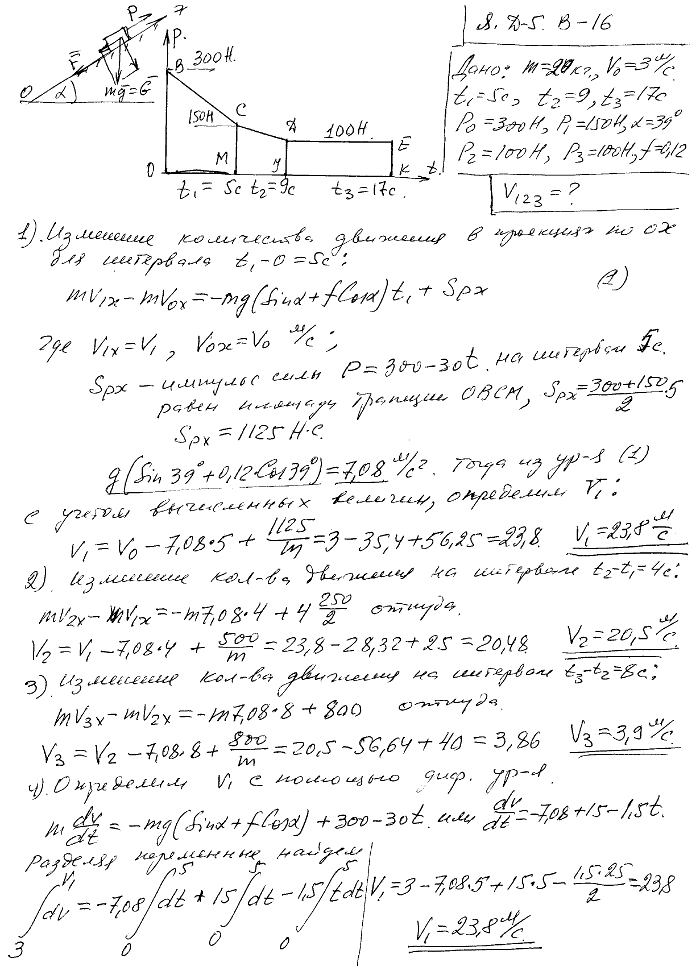 Я. Д-5. В-16
Дано: m=20 кг., V₀=3 м/с.
t₁=5с, t₂=9, t₃=17с
P₀=300Н, P₁=150Н, α=39°
P₂=100Н, P₃=100Н, f=0,12
V₁₂₃ = ?
P x
F̅
O α mg̅=G̅
P.
B 300Н.
150Н C
D 100Н. E
O M У K t.
t₁= 5с t₂=9с t₃=17с.
1). Изменение количества движения в проекциях на ox
для интервала t₁-0=5с:
mV₁ₓ-mV₀ₓ=-mg(Sinα+fCosα)t₁+Spx (1)
где V₁ₓ=V₁, V₀ₓ=V₀ м/с;
Spx - импульс силы P=300-30t. на интервале 5с.
равен площади трапеции ОВСМ, Spx=(300+150)/2·5
Spx=1125 Н·с.
g(Sin39°+0,12Cos39°)=7,08 м/с². Тогда из ур-я (1)
с учетом вычисленных величин, определим V₁:
V₁=V₀-7,08·5+1125/m=3-35,4+56,25=23,8. V₁=23,8 м/с
2). Изменение кол-ва движения на интервале t₂-t₁=4с:
mV₂ₓ-mV₁ₓ=-m7,08·4+4 250/2 откуда.
V₂=V₁-7,08·4+500/m=23,8-28,32+25=20,48. V₂=20,5 м/с.
3). Изменение кол-ва движения на интервале t₃-t₂=8с:
mV₃ₓ-mV₂ₓ=-m7,08·8+800 откуда.
V₃=V₂-7,08·8+800/m=20,5-56,64+40=3,86 V₃=3,9 м/с.
4). Определим V₁ с помощью диф. ур-я.
m dv/dt=-mg(Sinα+fCosα)+300-30t. или dv/dt=-7,08+15-1,5t.
Разделяя переменные найдем
∫₃^V₁ dv=-7,08∫₀⁵dt+15∫₀⁵dt-1,5∫₀⁵tdt V₁=3-7,08·5+15·5-1,5·25/2=23,8
V₁=23,8 м/с.